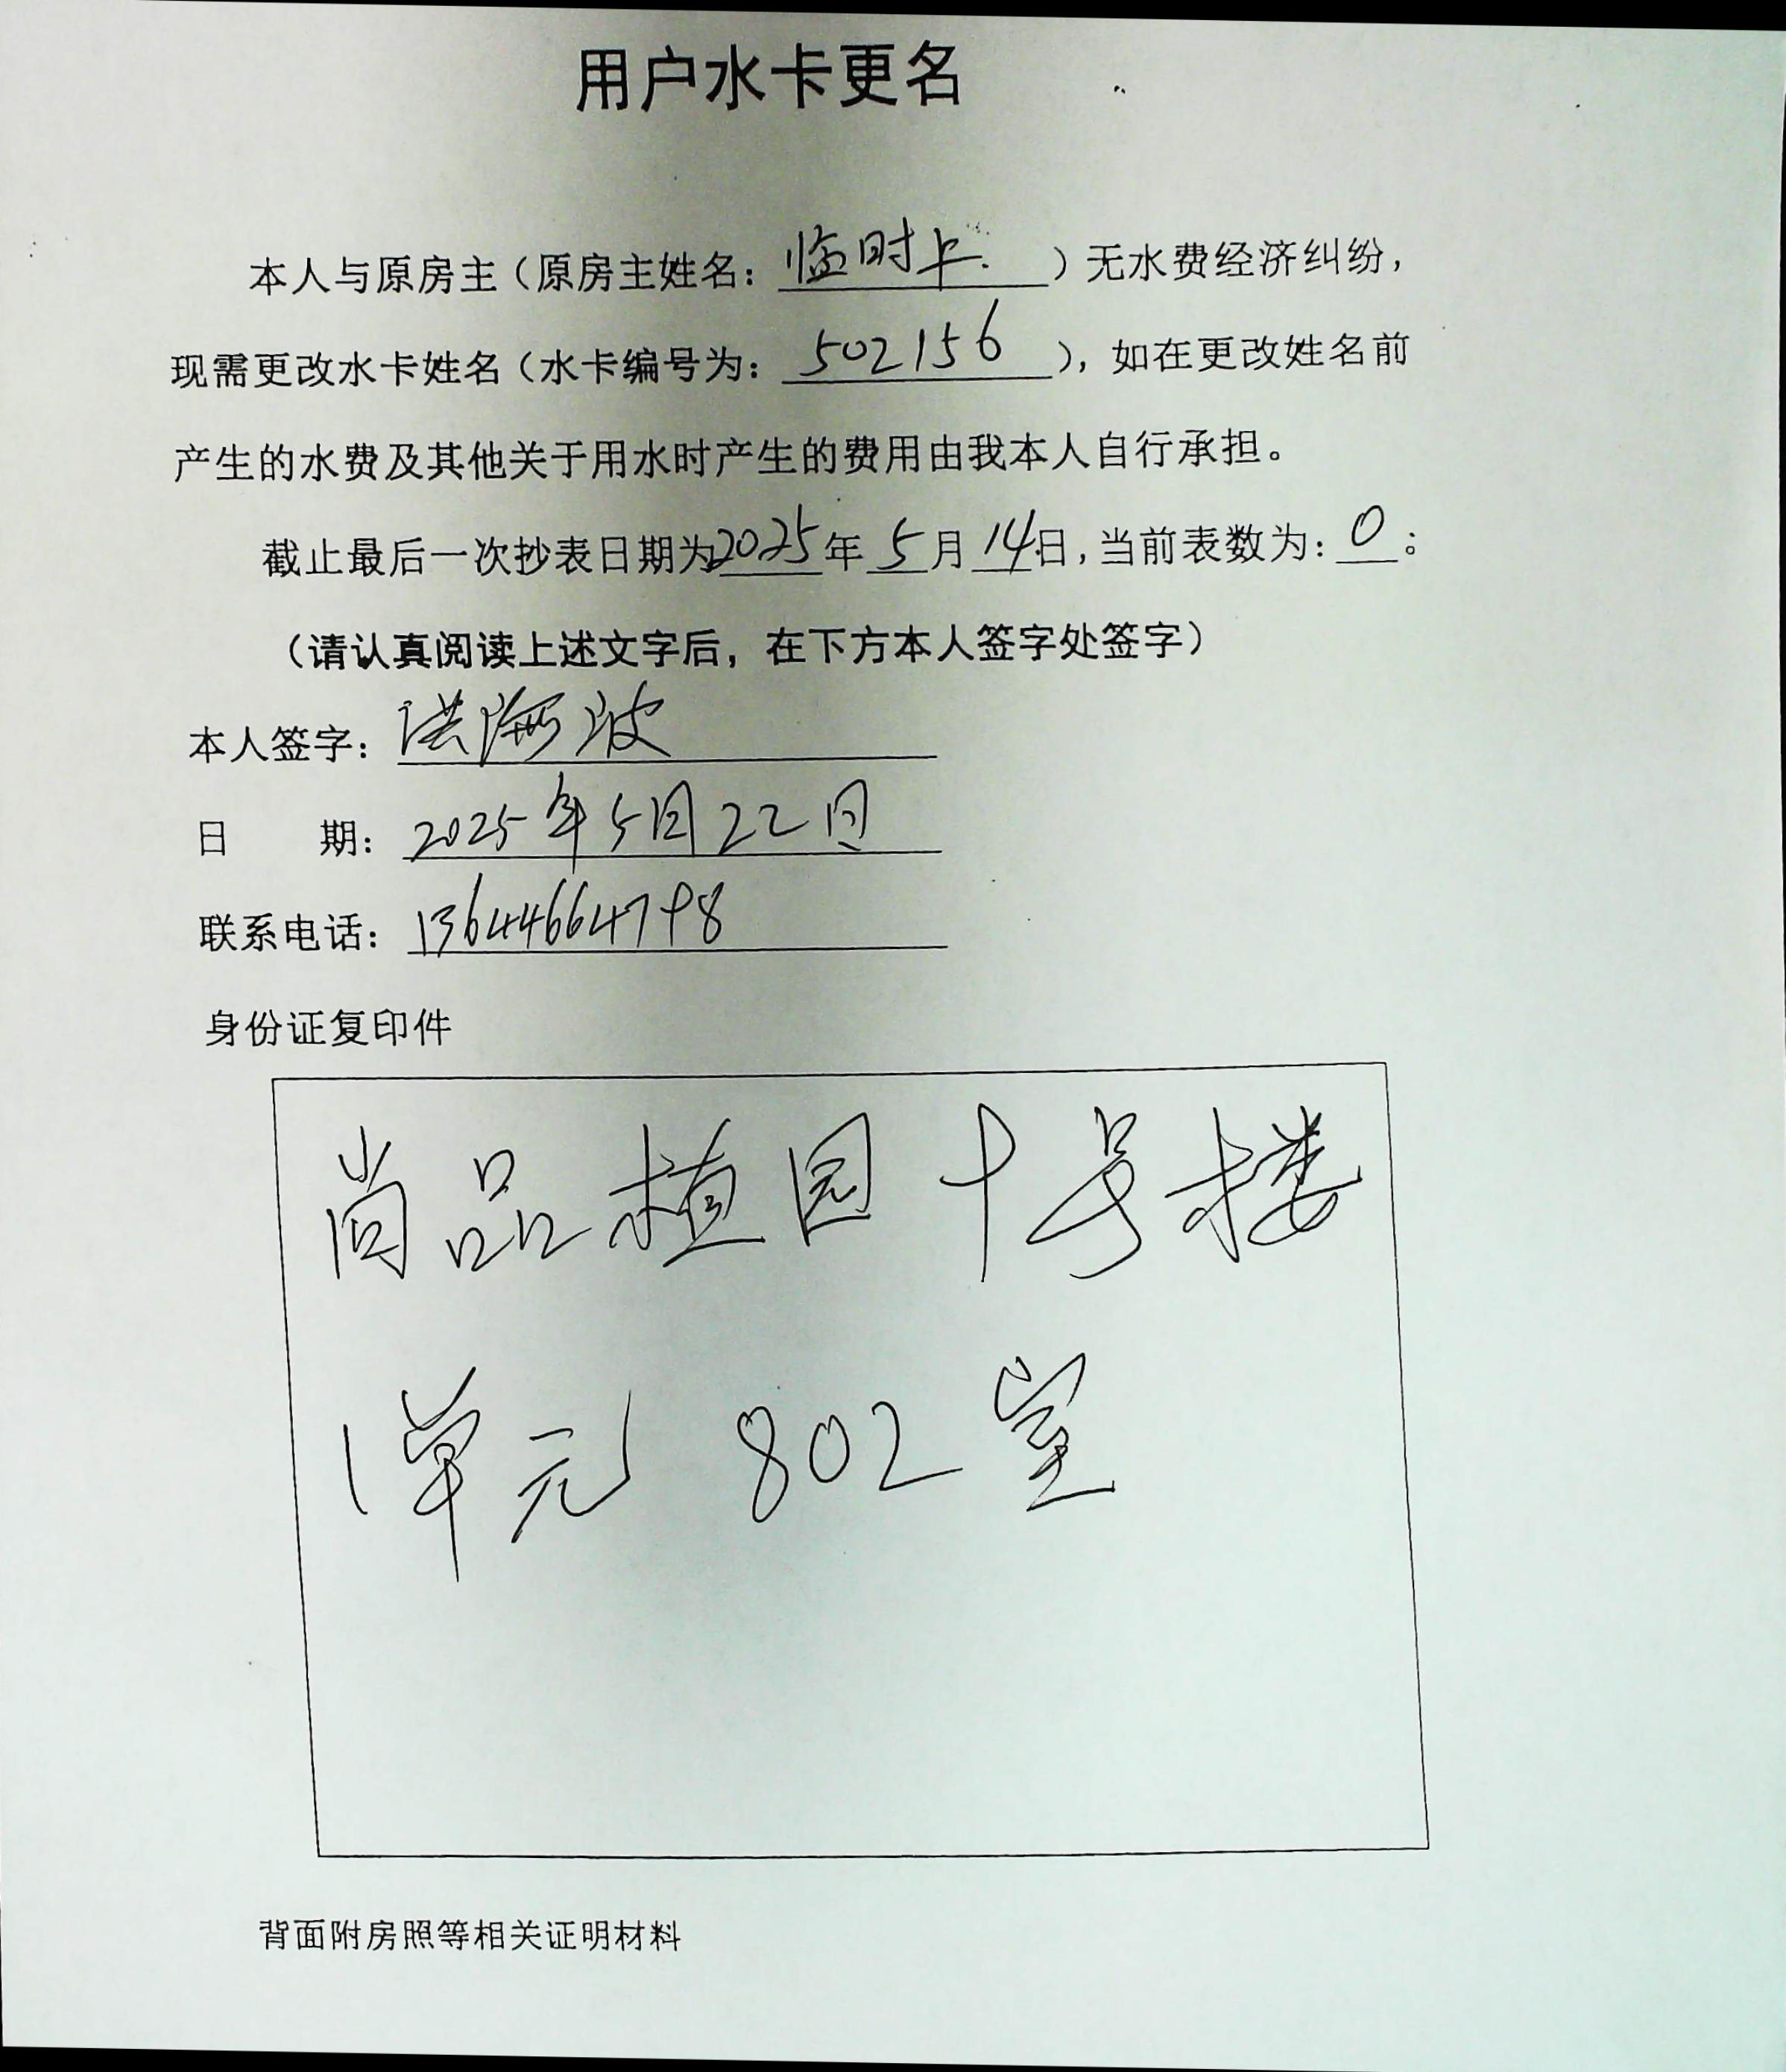 用户水卡更名
本人与原房主（原房主姓名：临时卡.）无水费经济纠纷，
现需更改水卡姓名（水卡编号为：502156），如在更改姓名前
产生的水费及其他关于用水时产生的费用由我本人自行承担。
截止最后一次抄表日期为2025年5月14日，当前表数为：0；
（请认真阅读上述文字后，在下方本人签字处签字）
本人签字：洪海波
日　　期：2025年5月22日
联系电话：13644664798
身份证复印件
尚品植园十号楼
1单元 802室
背面附房照等相关证明材料